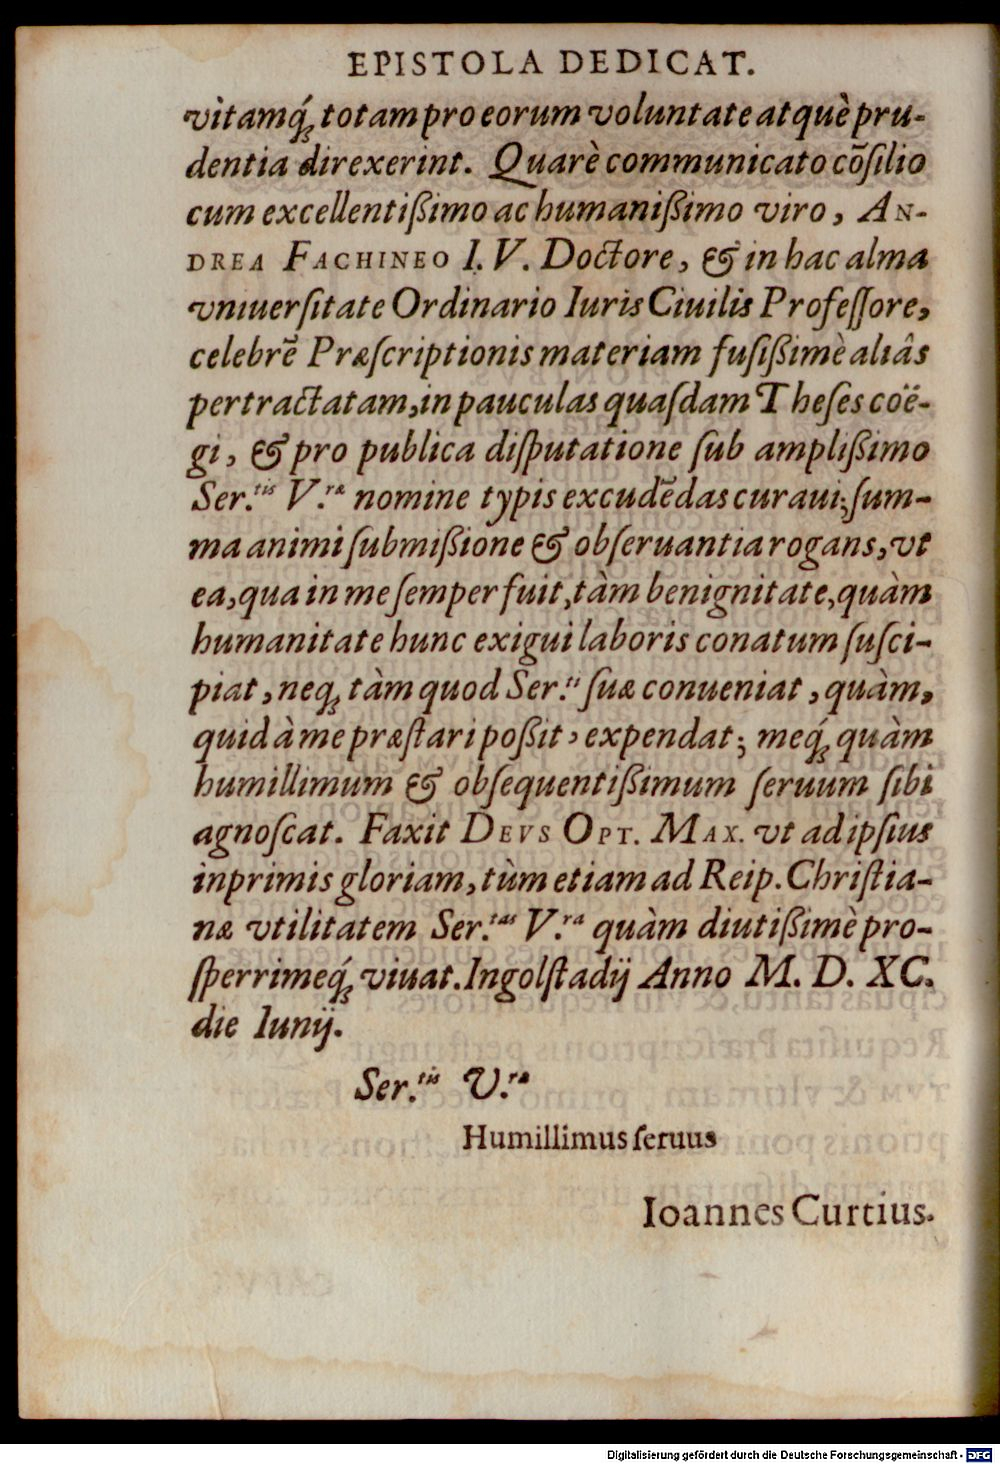 EPISTOLA DEDICAT.
vitamq́; totam pro eorum voluntate atquè pru-
dentia direxerint. Quarè communicato cõſilio
cum excellentißimo ac humanißimo viro, AN-
DREA FACHINEO I. V. Doctore, & in hac alma
vniuerſitate Ordinario Iuris Ciuilis Profeſſore,
celebrẽ Præſcriptionis materiam fuſißimè aliâs
pertractatam, in pauculas quaſdam Theſes coë-
gi, & pro publica diſputatione ſub amplißimo
Ser.tis V.ræ nomine typis excudẽdas curaui; ſum-
ma animi ſubmißione & obſeruantia rogans, vt
ea, qua in me ſemper fuit, tàm benignitate, quàm
humanitate hunc exigui laboris conatum ſuſci-
piat, neq; tàm quod Ser.ti ſuæ conueniat, quàm,
quid à me præſtari poßit, expendat; meq́; quàm
humillimum & obſequentißimum ſeruum ſibi
agnoſcat. Faxit DEVS OPT. MAX. vt ad ipſius
inprimis gloriam, tùm etiam ad Reip. Chriſtia-
næ vtilitatem Ser.tas V.ra quàm diutißimè pro-
ſperrimeq́; viuat. Ingolſtadij Anno M. D. XC.
die Iunij.
Ser.tis V.ræ
Humillimus ſeruus
Ioannes Curtius.
Digitalisierung gefördert durch die Deutsche Forschungsgemeinschaft - DFG